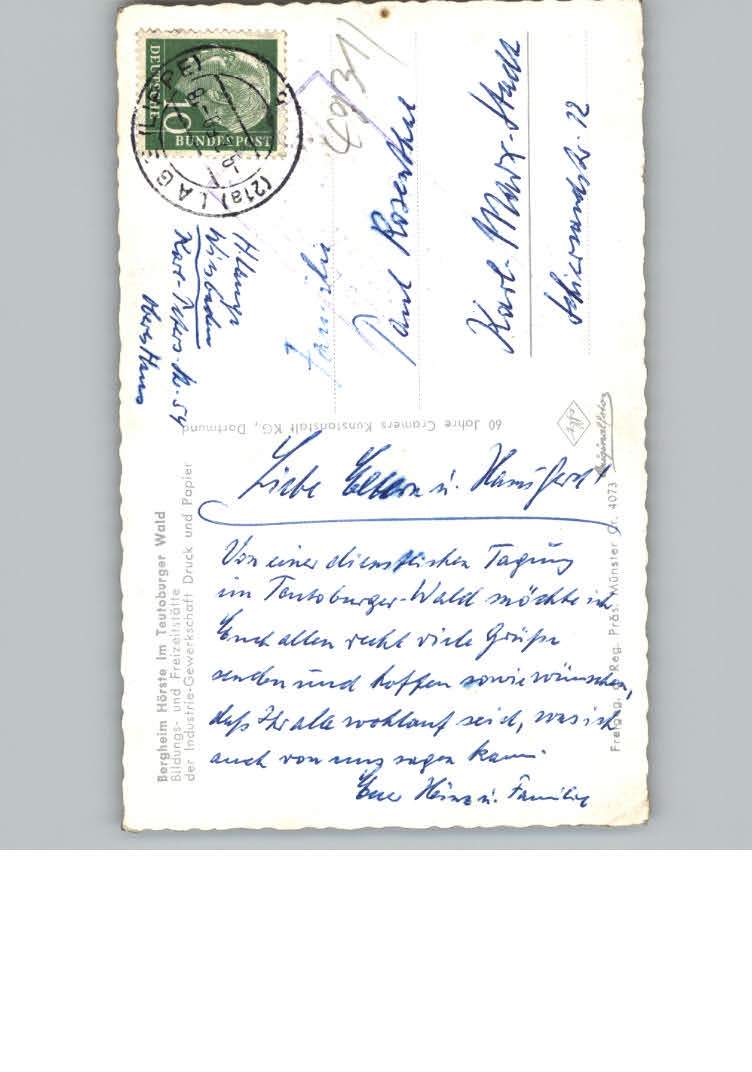 Bergheim Hörste im Teutoburger Wald
Bildungs- und Freizeitstätte
der Industrie-Gewerkschaft Druck und Papier
Liebe Eltern u. Hansgerd!
Von einer dienstlichen Tagung
im Teutoburger-Wald möchte ich
Euch allen recht viele Grüße
senden und hoffen sowie wünschen,
daß Ihr alle wohlauf seid, was ich
auch von uns sagen kann.
Euer Heinz u. Familie
60 Jahre Cramers Kunstanstalt KG., Dortmund
Originalfoto
Freigeg. Reg. Präs. Münster Nr. 4073
DEUTSCHE
BUNDESPOST
10
(21a) LAGE (LIPPE)
4931
H Lange
Wiesbaden
Karl-Peters-Str. 54
Familie
Paul Rosenthal
Karl-Marx-Stadt